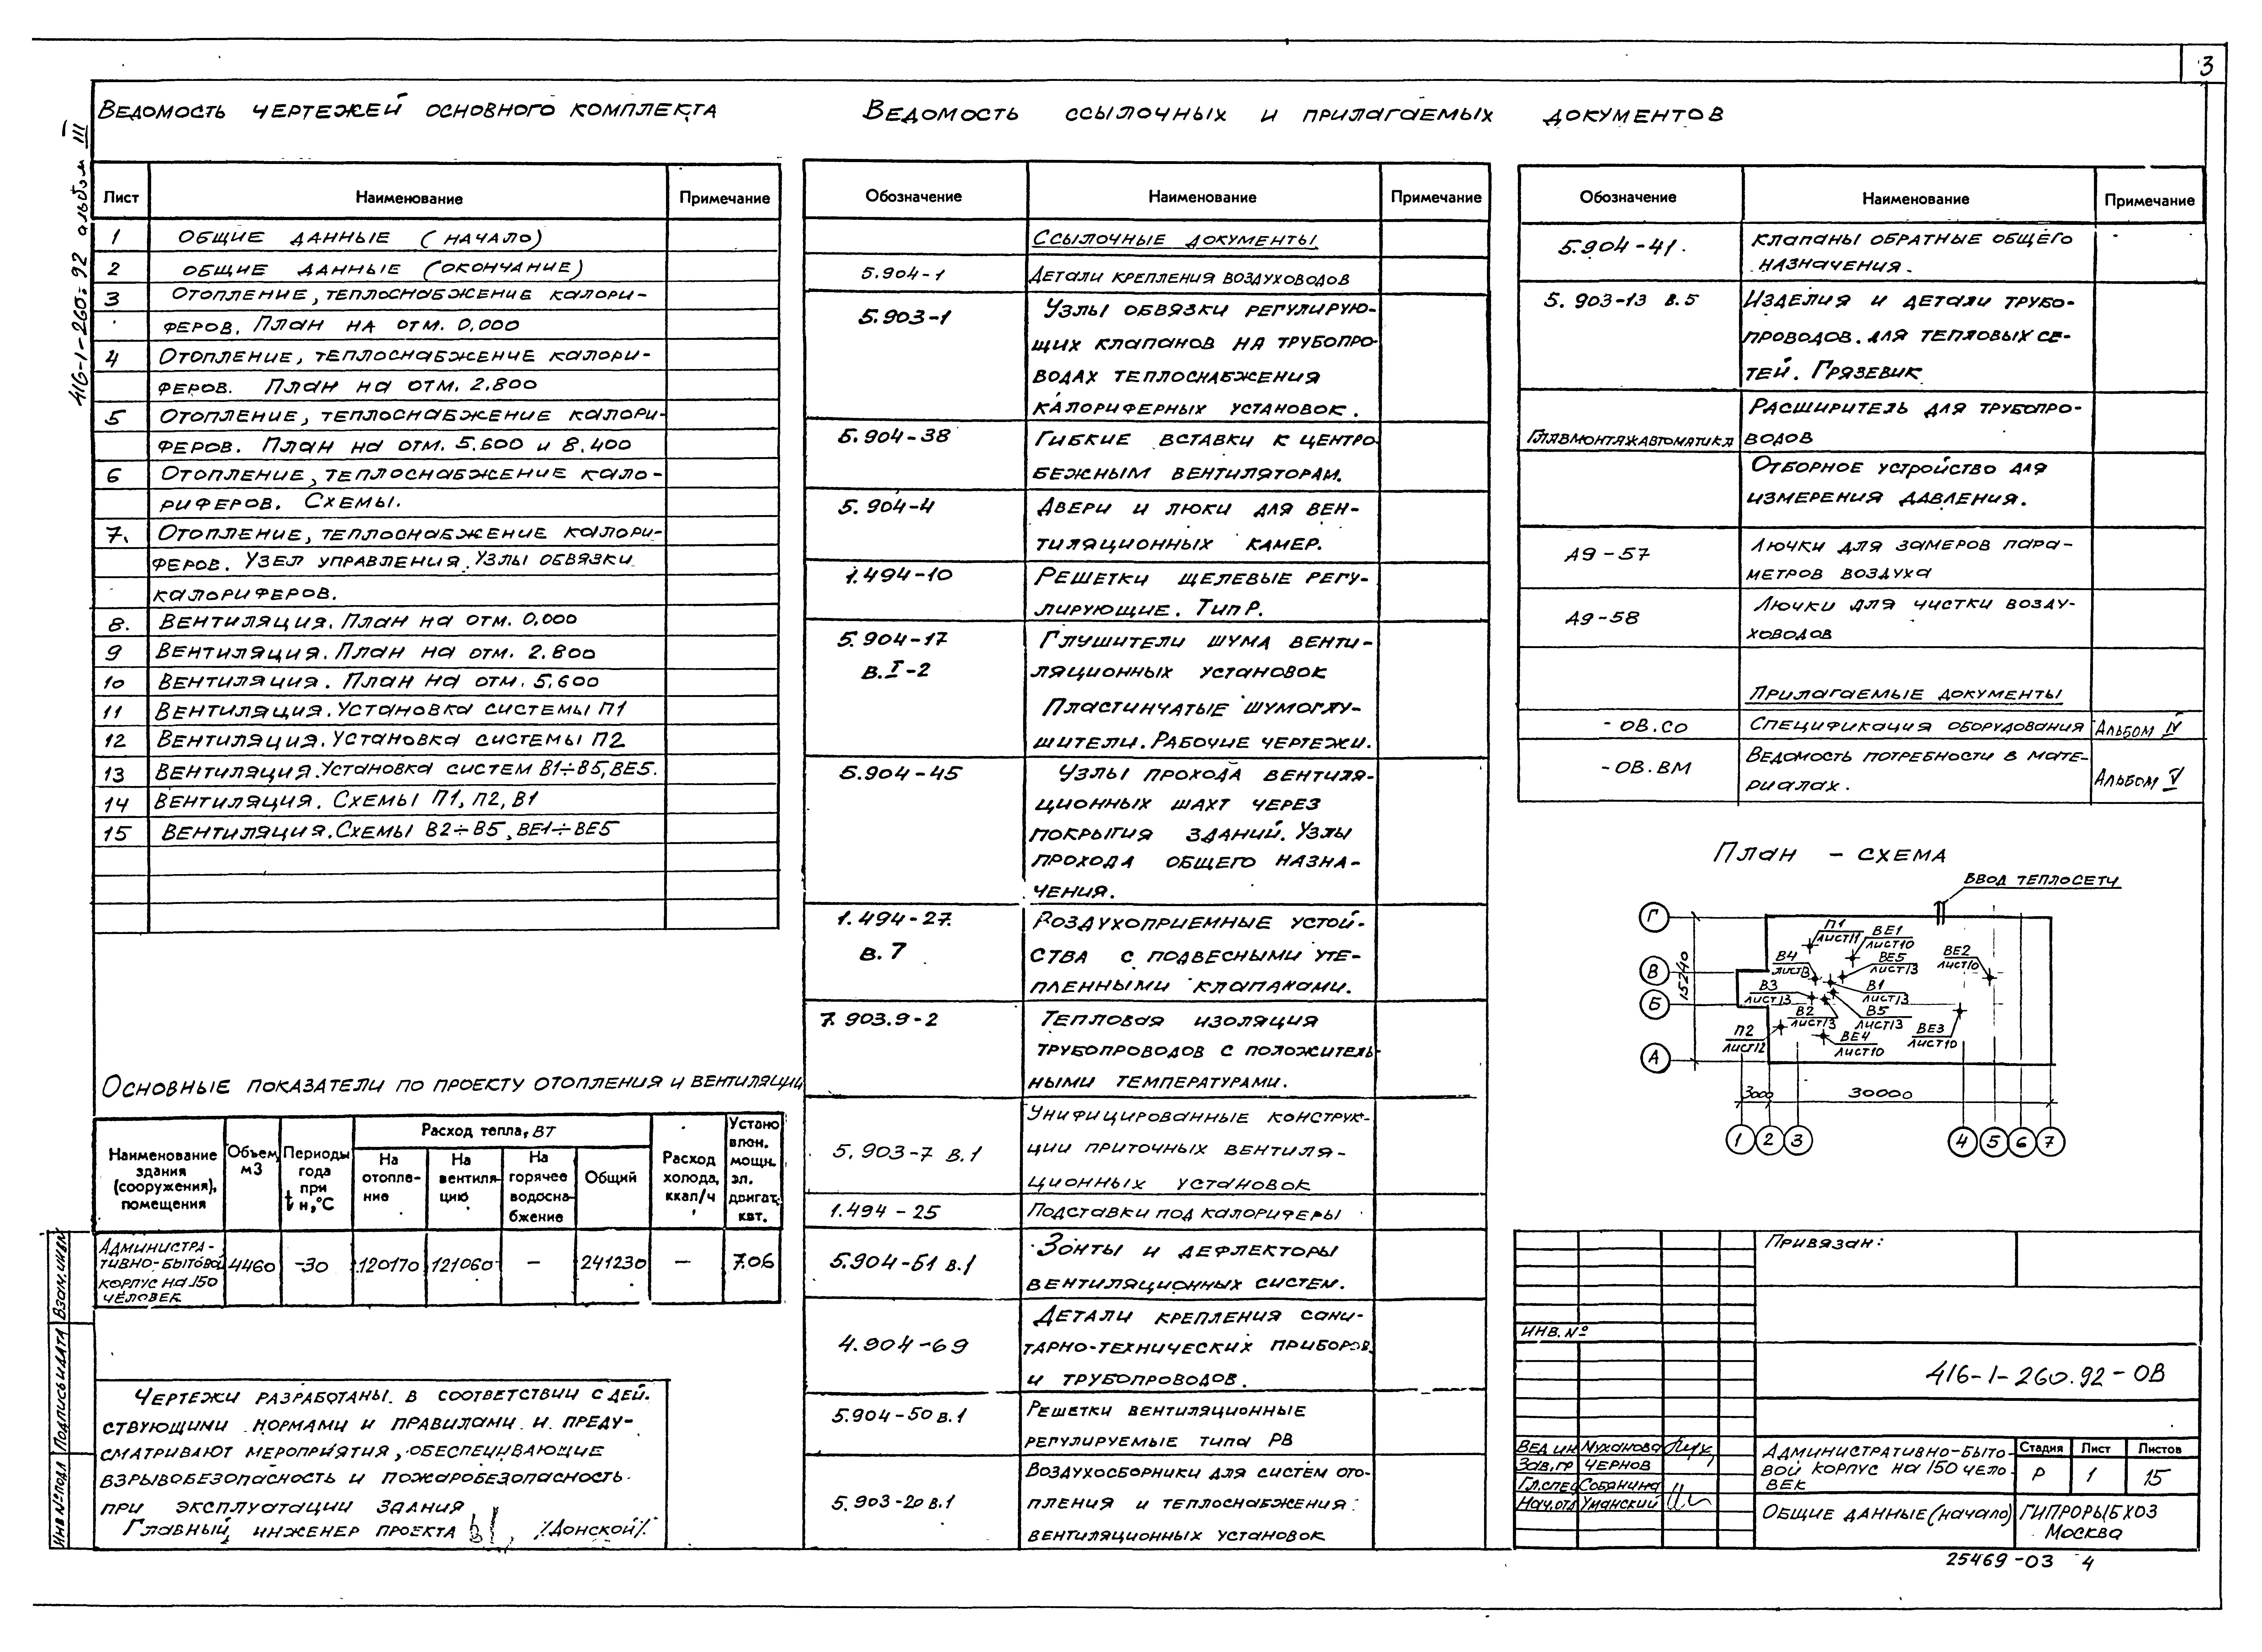 3
416-1-260.92 альбом III
ВЕДОМОСТЬ ЧЕРТЕЖЕЙ ОСНОВНОГО КОМПЛЕКТА
Лист Наименование Примечание
1 ОБЩИЕ ДАННЫЕ (НАЧАЛО)
2 ОБЩИЕ ДАННЫЕ (ОКОНЧАНИЕ)
3 ОТОПЛЕНИЕ, ТЕПЛОСНАБЖЕНИЕ КАЛОРИ-
ФЕРОВ. ПЛАН НА ОТМ. 0,000
4 ОТОПЛЕНИЕ, ТЕПЛОСНАБЖЕНИЕ КАЛОРИ-
ФЕРОВ. ПЛАН НА ОТМ. 2.800
5 ОТОПЛЕНИЕ, ТЕПЛОСНАБЖЕНИЕ КАЛОРИ-
ФЕРОВ. ПЛАН НА ОТМ. 5.600 И 8.400
6 ОТОПЛЕНИЕ, ТЕПЛОСНАБЖЕНИЕ КАЛО-
РИФЕРОВ. СХЕМЫ.
7. ОТОПЛЕНИЕ, ТЕПЛОСНАБЖЕНИЕ КАЛОРИ-
ФЕРОВ. УЗЕЛ УПРАВЛЕНИЯ. УЗЛЫ ОБВЯЗКИ
КАЛОРИФЕРОВ.
8. ВЕНТИЛЯЦИЯ. ПЛАН НА ОТМ. 0.000
9 ВЕНТИЛЯЦИЯ. ПЛАН НА ОТМ. 2.800
10 ВЕНТИЛЯЦИЯ. ПЛАН НА ОТМ. 5.600
11 ВЕНТИЛЯЦИЯ. УСТАНОВКА СИСТЕМЫ П1
12 ВЕНТИЛЯЦИЯ. УСТАНОВКА СИСТЕМЫ П2
13 ВЕНТИЛЯЦИЯ. УСТАНОВКА СИСТЕМ В1÷В5, ВЕ5.
14 ВЕНТИЛЯЦИЯ. СХЕМЫ П1, П2, В1
15 ВЕНТИЛЯЦИЯ. СХЕМЫ В2÷В5, ВЕ1÷ВЕ5
ОСНОВНЫЕ ПОКАЗАТЕЛИ ПО ПРОЕКТУ ОТОПЛЕНИЯ И ВЕНТИЛЯЦИИ
Наименование здания (сооружения), помещения
Объем, м3
Периоды года при tн,°С
Расход тепла, ВТ
На отопле-ние
На вентиля-цию
На горячее водосна-бжение
Общий
Расход холода, ккал/ч
Устано влен. мощн. эл. двигат, квт.
АДМИНИСТРА-
ТИВНО-БЫТОВОЙ
КОРПУС НА 150
ЧЕЛОВЕК
4460 -30 120170 121060 — 241230 — 7.06
ЧЕРТЕЖИ РАЗРАБОТАНЫ В СООТВЕТСТВИИ С ДЕЙ.
СТВУЮЩИМИ НОРМАМИ И ПРАВИЛАМИ И ПРЕДУ-
СМАТРИВАЮТ МЕРОПРИЯТИЯ, ОБЕСПЕЧИВАЮЩИЕ
ВЗРЫВОБЕЗОПАСНОСТЬ И ПОЖАРОБЕЗОПАСНОСТЬ
ПРИ ЭКСПЛУАТАЦИИ ЗДАНИЯ
ГЛАВНЫЙ ИНЖЕНЕР ПРОЕКТА /ДОНСКОЙ/
ИНВ №ПОДЛ ПОДПИСЬ И ДАТА ВЗАМ.ИНВ№
ВЕДОМОСТЬ ССЫЛОЧНЫХ И ПРИЛАГАЕМЫХ ДОКУМЕНТОВ
Обозначение Наименование Примечание
ССЫЛОЧНЫЕ ДОКУМЕНТЫ
5.904-1 ДЕТАЛИ КРЕПЛЕНИЯ ВОЗДУХОВОДОВ
5.903-1 УЗЛЫ ОБВЯЗКИ РЕГУЛИРУЮ-
ЩИХ КЛАПАНОВ НА ТРУБОПРО-
ВОДАХ ТЕПЛОСНАБЖЕНИЯ
КАЛОРИФЕРНЫХ УСТАНОВОК.
5.904-38 ГИБКИЕ ВСТАВКИ К ЦЕНТРО
БЕЖНЫМ ВЕНТИЛЯТОРАМ.
5.904-4 ДВЕРИ И ЛЮКИ ДЛЯ ВЕН-
ТИЛЯЦИОННЫХ КАМЕР.
1.494-10 РЕШЕТКИ ЩЕЛЕВЫЕ РЕГУ-
ЛИРУЮЩИЕ. ТИП Р.
5.904-17 ГЛУШИТЕЛИ ШУМА ВЕНТИ-
В.I-2 ЛЯЦИОННЫХ УСТАНОВОК
ПЛАСТИНЧАТЫЕ ШУМОГЛУ-
ШИТЕЛИ. РАБОЧИЕ ЧЕРТЕЖИ.
5.904-45 УЗЛЫ ПРОХОДА ВЕНТИЛЯ-
ЦИОННЫХ ШАХТ ЧЕРЕЗ
ПОКРЫТИЯ ЗДАНИЙ. УЗЛЫ
ПРОХОДА ОБЩЕГО НАЗНА-
ЧЕНИЯ.
1.494-27. ВОЗДУХОПРИЕМНЫЕ УСТОЙ-
В.7 СТВА С ПОДВЕСНЫМИ УТЕ-
ПЛЕННЫМИ КЛАПАНАМИ.
7.903.9-2 ТЕПЛОВАЯ ИЗОЛЯЦИЯ
ТРУБОПРОВОДОВ С ПОЛОЖИТЕЛЬ-
НЫМИ ТЕМПЕРАТУРАМИ.
УНИФИЦИРОВАННЫЕ КОНСТРУК-
5.903-7 В.1 ЦИИ ПРИТОЧНЫХ ВЕНТИЛЯ-
ЦИОННЫХ УСТАНОВОК
1.494-25 ПОДСТАВКИ ПОД КАЛОРИФЕРЫ
5.904-51 В.1 ЗОНТЫ И ДЕФЛЕКТОРЫ
ВЕНТИЛЯЦИОННЫХ СИСТЕМ.
ДЕТАЛИ КРЕПЛЕНИЯ САНИ-
4.904-69 ТАРНО-ТЕХНИЧЕСКИХ ПРИБОРОВ
И ТРУБОПРОВОДОВ.
5.904-50 В.1 РЕШЕТКИ ВЕНТИЛЯЦИОННЫЕ
РЕГУЛИРУЕМЫЕ ТИПА РВ
ВОЗДУХОСБОРНИКИ ДЛЯ СИСТЕМ ОТО-
5.903-20 В.1 ПЛЕНИЯ И ТЕПЛОСНАБЖЕНИЯ
ВЕНТИЛЯЦИОННЫХ УСТАНОВОК
Обозначение Наименование Примечание
5.904-41. КЛАПАНЫ ОБРАТНЫЕ ОБЩЕГО
НАЗНАЧЕНИЯ.
5.903-13 В.5 ИЗДЕЛИЯ И ДЕТАЛИ ТРУБО-
ПРОВОДОВ. ДЛЯ ТЕПЛОВЫХ СЕ-
ТЕЙ. ГРЯЗЕВИК
РАСШИРИТЕЛЬ ДЛЯ ТРУБОПРО-
ГЛАВМОНТАЖАВТОМАТИКА ВОДОВ
ОТБОРНОЕ УСТРОЙСТВО ДЛЯ
ИЗМЕРЕНИЯ ДАВЛЕНИЯ.
А9-57 ЛЮЧКИ ДЛЯ ЗАМЕРОВ ПАРА-
МЕТРОВ ВОЗДУХА
А9-58 ЛЮЧКИ ДЛЯ ЧИСТКИ ВОЗДУ-
ХОВОДОВ
ПРИЛАГАЕМЫЕ ДОКУМЕНТЫ
-ОВ.СО СПЕЦИФИКАЦИЯ ОБОРУДОВАНИЯ АЛЬБОМ IV
-ОВ.ВМ ВЕДОМОСТЬ ПОТРЕБНОСТИ В МАТЕ-
РИАЛАХ. АЛЬБОМ V
ПЛАН - СХЕМА
ВВОД ТЕПЛОСЕТИ
Г В Б А
15240
П1 ЛИСТ11
ВЕ1 ЛИСТ10
ВЕ5 ЛИСТ13
ВЕ2 ЛИСТ10
В4 ЛИСТ13
В3 ЛИСТ13
В1 ЛИСТ13
В2 ЛИСТ13
В5 ЛИСТ13
ВЕ3 ЛИСТ10
П2 ЛИСТ12
ВЕ4 ЛИСТ10
3000 30000
1 2 3 4 5 6 7
ПРИВЯЗАН:
ИНВ. №
416-1-260.92-ОВ
ВЕД ИН МУХАНОВА
ЗАВ.ГР ЧЕРНОВ
ГЛ.СПЕЦ СОБЯНИНА
НАЧ.ОТД УМАНСКИЙ
АДМИНИСТРАТИВНО-БЫТО-
ВОЙ КОРПУС НА 150 ЧЕЛО-
ВЕК
Стадия Лист Листов
Р 1 15
ОБЩИЕ ДАННЫЕ (НАЧАЛО)
ГИПРОРЫБХОЗ
МОСКВА
25469-03 4